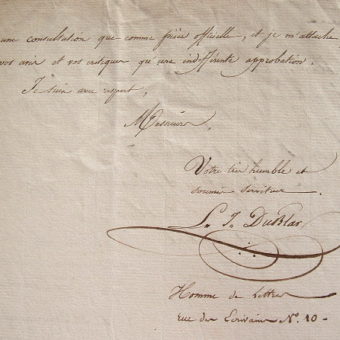 une consultation que comme pièce officielle, et je m'attache
vos avis et vos critiques qu'une indifférente approbation.
Je suis avec respect,
Messieurs,
Votre très humble et
soumis serviteur.
L. J. Dublar
Homme de lettres
rue des Ecrivains N.° 10-